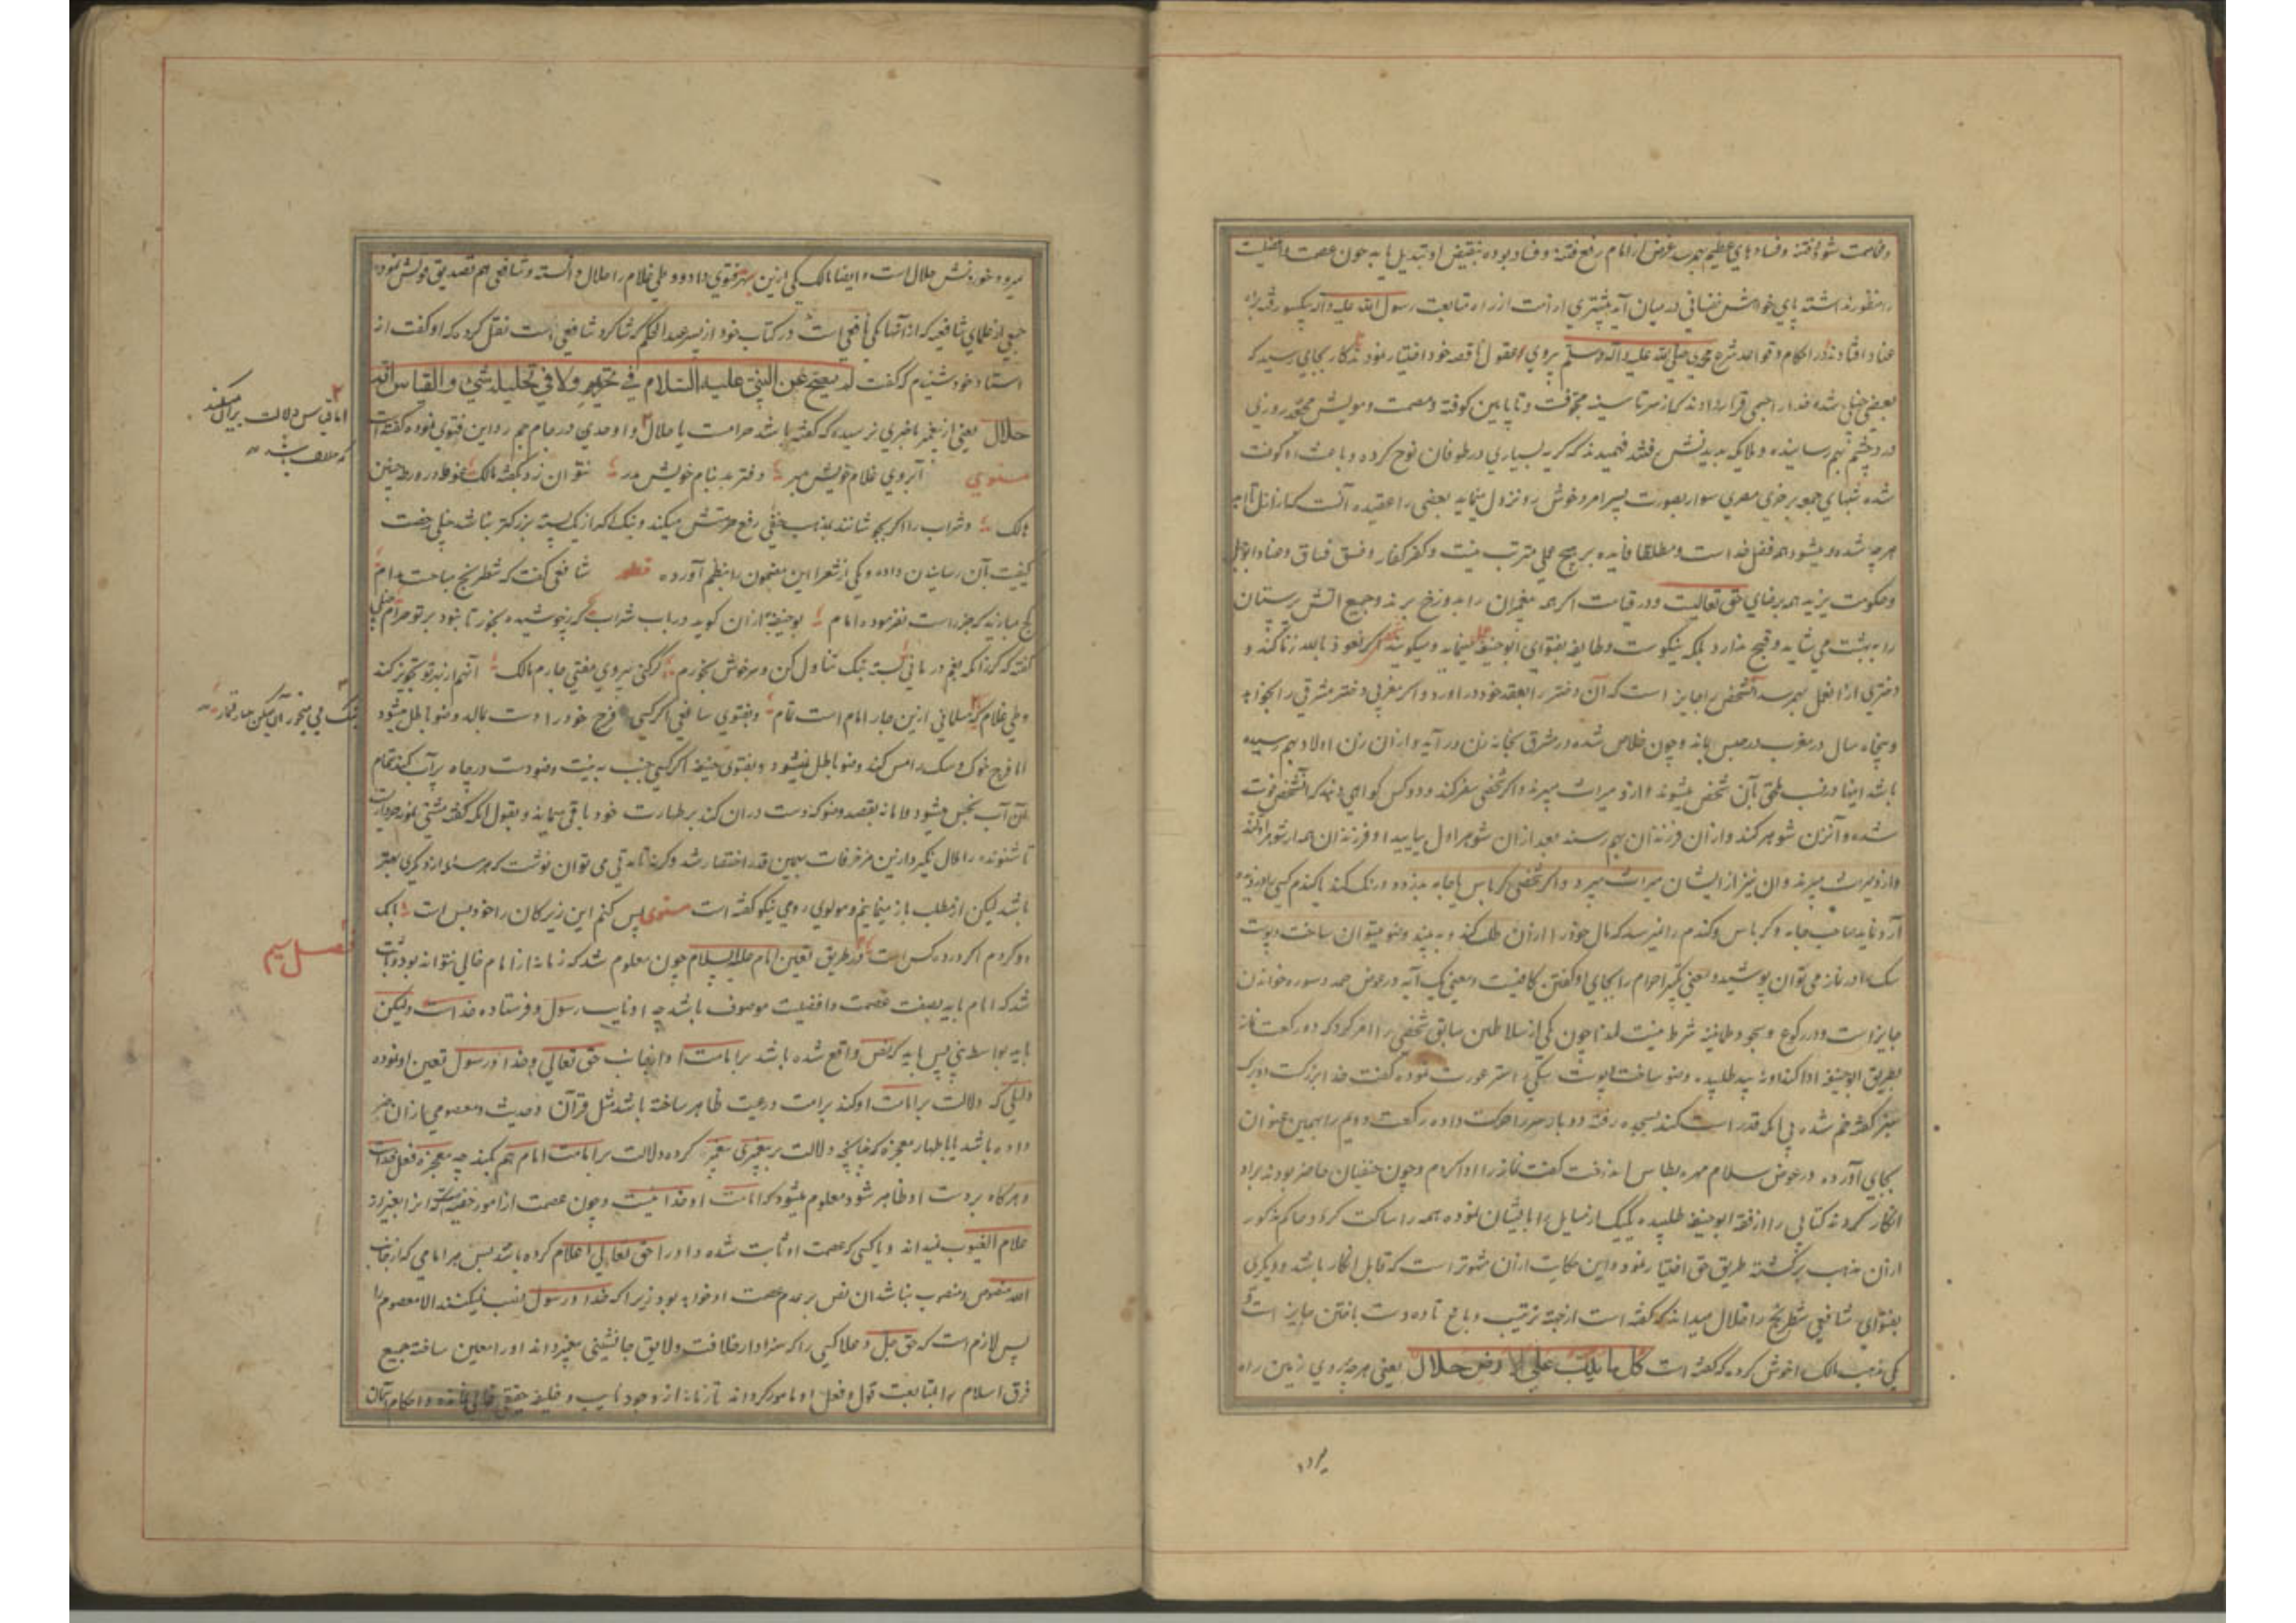 و خاصمت شود فتنه و فسادهای عظیم بهم رسد غرض از امام رفع فتنه و فساد بوده بنقیض او تبدیل یابد چون عصمت و افضلیت
را منظور نداشته پای خواهش نفسانی در میان آید بیشتری از امت از راه متابعت رسول الله علیه و آله یکسو رفته براه
عناد افتادند در احکام و قواعد شرع محمدی صلی الله علیه و آله وسلم پیروی عقول ناقصه خود اختیار نمودند کار بجایی رسید که
بعضی حنبلی شده خدا را جسمی قرار دادند که از سر تا سینه مجوفت و تا پایین کوفته و مویش مجعد روزی
درد چشم بهم رسانیده و ملایکه بدیدنش رفتند فهمیدند که گریه بسیاری در طوفان نوح کرده و باعث او گوفت
شده شبهای جمعه بر خری مصری سوار بصورت پسر امرد خوش رو نزول مینماید بعضی را عقیده آنست که از ازل تا ابد
هر چه شده و میشود همه فعل خدا است و مطلقا فایده بر هیچ عملی مترتب نیست و کفر کفار و فسق فساق و عناد ابوجهل
و حکومت یزید همه برضای حق تعالیست و در قیامت اگر همه پیغمبران را بدوزخ برند و جمیع آتش پرستان
را به بهشت می شاید و قبح ندارد بلکه نیکوست و طایفه بفتوای ابوحنیفه عمل مینماید و میگویند که اگر کسی نعوذ بالله زنا کند و
دختری از آن فعل بهم رسد آنشخص را جایز است که آن دختر را بعقد خود در آورد و اگر مغربی دختر مشرقی را بخواهد
و پنجاه سال در مغرب در حبس باند و چون خلاص شده در مشرق بخانه زن در آید و از آن زن اولاد بهم رسیده
باشد اینها در نسب ملحق بآن شخص میشوند و از او میراث میبرند و اگر شخصی سفر کند و دو کس گواهی دهند که آنشخص فوت
شده و آنزن شوهر کند و از آن فرزندان بهم رسند بعد از آن شوهر اول بیاید او فرزندان همه از شوهر اولند
و از و میراث میبرند و آن نیز از ایشان میراث میبرد و اگر شخصی کرباس یا جامه بدزدد و رنگ کند یا گندم کسی را دزدیده
آرد نماید صاحب جامه و کرباس و گندم را نمیرسد که مال خود را از آن طلب کند و به نبیذ وضو میتوان ساخت و پوست
سگ را در نماز می توان پوشید و معنی تکبیر احرام را بجای او گفتن کافیست و معنی یک آیه در عوض حمد و سوره خواندن
جایز است و در رکوع و سجود طمانینه شرط نیست لهذا چون یکی از سلاطین سابق شخصی را امر کرد که دو رکعت نماز
بطریق ابوحنیفه ادا کند او نبیذ طلبیده وضو ساخت پوست سگی را ستر عورت نموده گفت خدا بزرگست و برگ
سبز گفته خم شده بی آنکه قدر است کند بسجده رفته دو بار سر را حرکت داده رکعت دویم را بهمین عنوان
بجای آورده در عوض سلام گفت نماز را ادا کردم و چون حنفیان حاضر بودند براو
انکار کردند کتابی را از فقه ابوحنیفه طلبیده یکیک از مسایل را باثبات نموده همه را ساکت کرد و حاکم مذکور
از آن مذهب برگشته طریق حق اختیار نمود و این حکایت از آن مشهورتر است که قابل انکار باشد و دیگری
بفتوای شافعی شطرنج را حلال میداند که گفته است از جهة ترتیب دماغ تا ده دست باختن جایز است و
یکی مذهب مالک را خوش کرده که گفته است کل ما یدب علی الارض حلال یعنی هر چه بروی زمین راه
میرود
میرود خوردنش حلال است و ایضا مالک یکی ازین بهتر فتوی داده و وطی غلام را حلال دانسته و شافعی هم تصدیق قولش نموده
جمعی از علمای شافعیه که از آنها یکی یافعی است در کتاب خود از پسر عبد الحکم که شاگرد شافعی است نقل کرده که او گفت از
استاد خود شنیدم که گفت لم یصح عن النبی علیه السلام فی تحریمه ولا فی تحلیله شیء و القیاس انه
حلال یعنی از پیغمبر ما خبری نرسیده که گفته باشد حرامست یا حلال و اوحدی در جام جم رد این فتوی نموده گفته است
مثنوی آبروی غلام خویش مبر دفتر بد بنام خویش مدر نتوان زد بگفته مالک غوطه در ورطه چنین
هالک و شراب را اگر بجوشانند بمذهب حنفی رفع حرمتش میکند و بنگ اگر از یک پسته بزرگتر نباشد حنبلی رخصت
کیفیت آن رسانیدن داده و یکی از شعرا این مضمون را بنظم آورده قطعه شافعی گفت که شطرنج مباحست مدام
کج مبازید که جز راست نفرموده امام بوحنیفه به از آن گوید در باب شراب که ز جوشیده بخور تا نبود بر تو حرام حنبلی
گفته که گر زانکه بغم در مانی پسته بنگ تناول کن و سرخوش بخرام گر کنی پیروی مفتی چارم مالک آنهم از بهر تو تجویز کند
وطی غلام که مسلمانی ازین چار امام است تمام و بفتوی شافعی اگر کسی فرج خود را دست بمالد وضو باطل میشود
اما فرج خوک و سگ را مس کند وضو باطل نمیشود و بفتوی حنیفه اگر کسی جنب به نیت وضو دست در چاه پر آب کند تمام
آن آب نجس میشود و اما نه بقصد وضو که دست در آن کند بر طهارت خود باقی میماند و بقول آنکه گفته مشتی نمونه خروار است
تا شنونده را ملال نگیرد ازین مزخرفات بهمین قدر اختصار شد وگرنه تا به قی می توان نوشت که هر مسئله از دیگری بهتر
باشد لیکن از مطلب باز میمانیم و مولوی رومی نیکو گفته است مثنوی پس کنم این زیرکان را خود بس است بانک
دو کردم اگر در ده کس است در طریق تعین امام علیه السلام چون معلوم شد که زمانه از امام خالی نتواند بود و ثابت
شد که امام باید بصفت عصمت و افضلیت موصوف باشد چه او نایب رسول و فرستاده خداست و لیکن
باید بواسطه نبی پس باید که نص واقع شده باشد بر امامت او از جانب حق تعالی و خدا و رسول تعین او نموده
دلیلی که دلالت بر امامت او کند بر امت و رعیت ظاهر ساخته باشد مثل قرآن و حدیث و معصومی از آن خبر
داده باشد یا باظهار معجزه که چنانچه دلالت بر پیغمبری پیغمبر کرده دلالت بر امامت امام هم بکند چه معجزه فعل خداست
و هر گاه بر دست او ظاهر شود معلوم میشود که امامت او خدائیست و چون عصمت از امور خفیه است آنرا بغیر از
علام الغیوب نمیداند و یا کسی که عصمت او ثابت شده و او را حق تعالی اعلام کرده باشد پس هر امامی که از جانب
الله منصوص و منصوب نباشد آن نص بر عدم عصمت او خواهد بود زیرا که خدا و رسول نصب نمیکنند الا معصوم را
پس لازم است که حق جل و علا کسی را که سزاوار خلافت و لایق جانشینی پیغمبر داند او را معین ساخته جمیع
فرق اسلام را بمتابعت قول و فعل او مامور گرداند تا زمانه از وجود نایب و خلیفه حقیقی خالی نمانده و احکام آسمان
اما قیاس دلالت بر آن میکند
که حلال باشد
بنگ می میخور آن میکن میباز قمار
فصل سیم